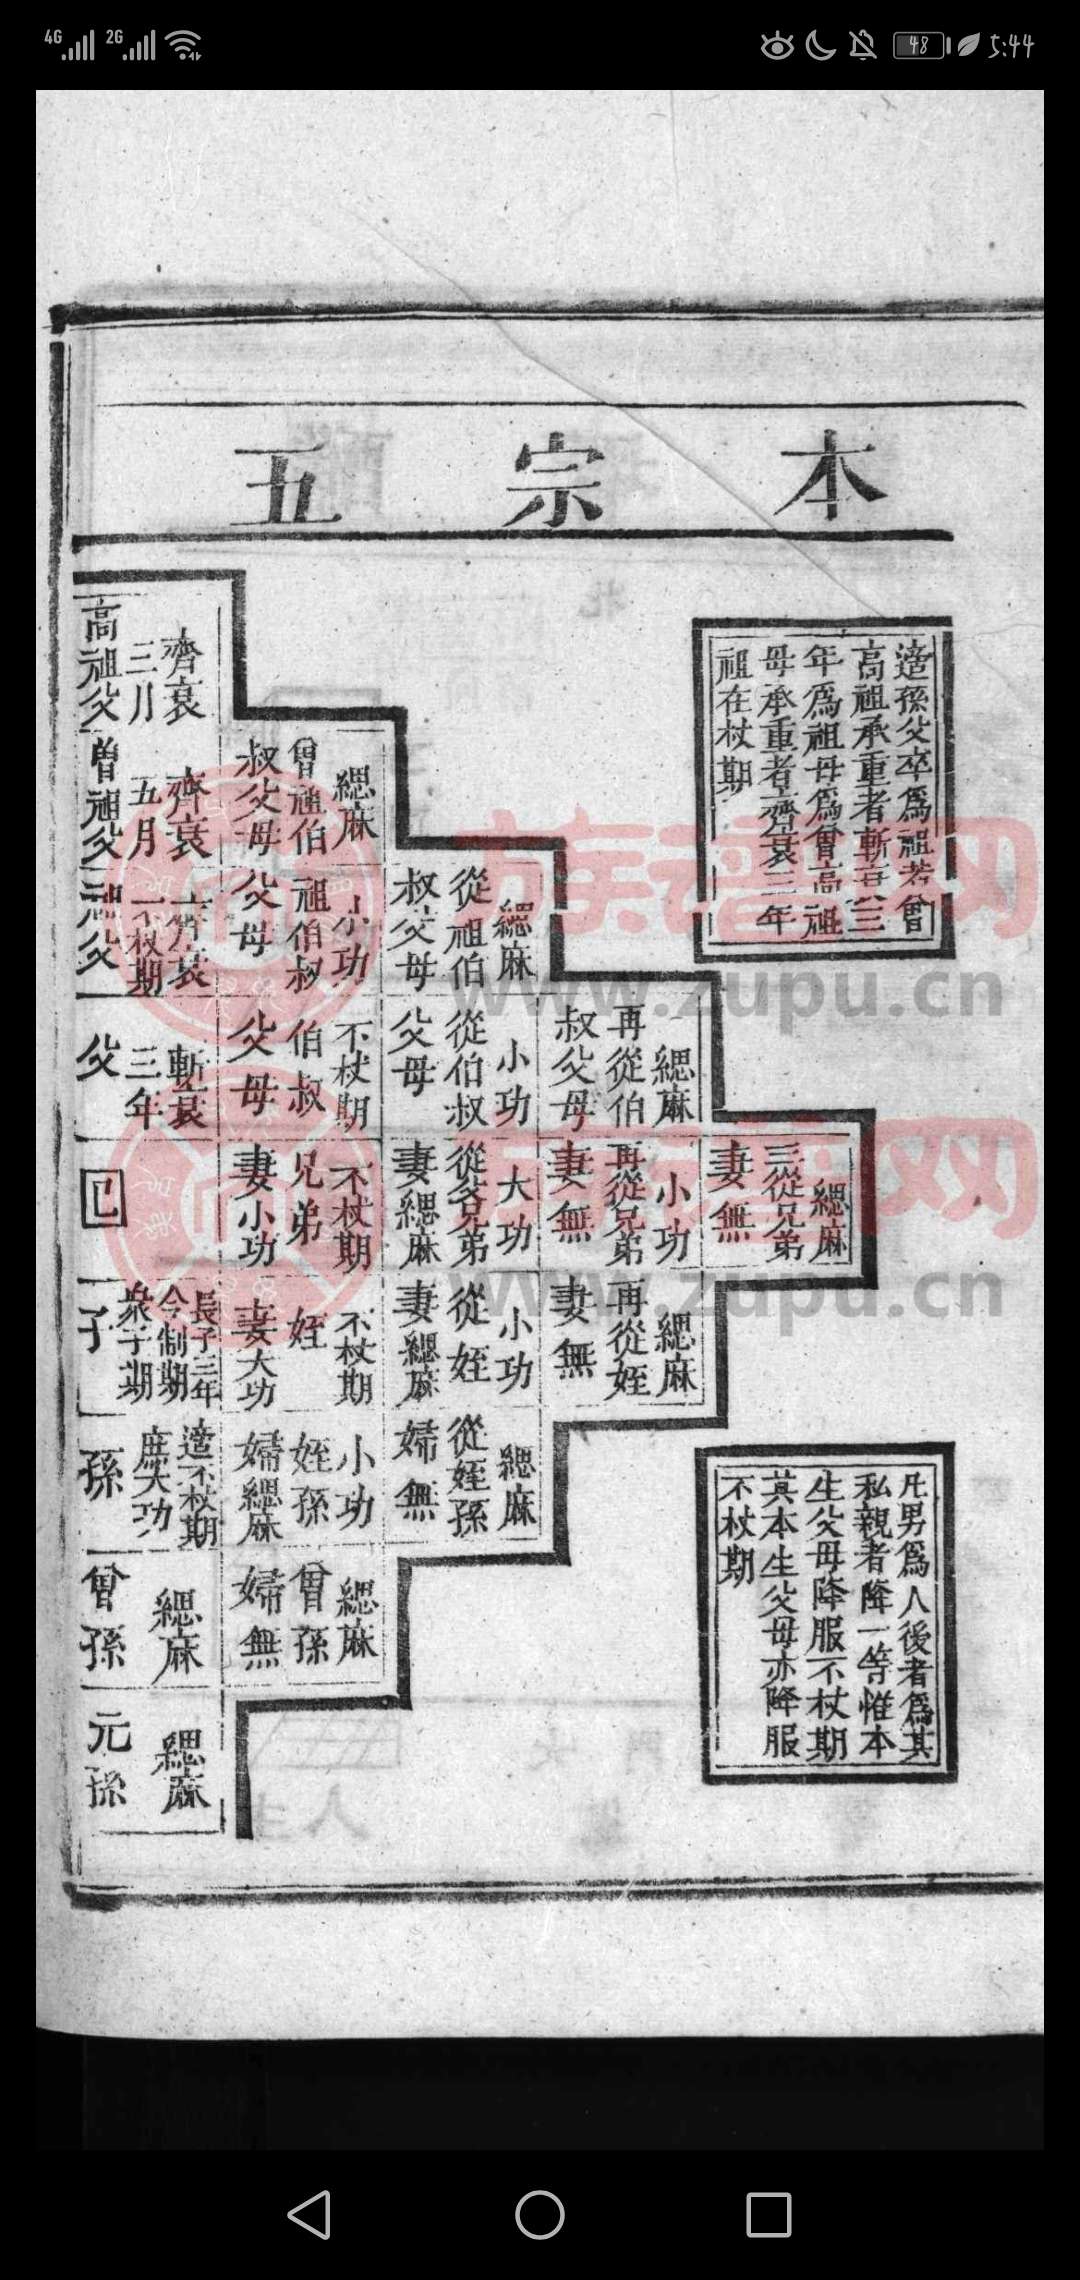 4G 2G 48 5:44
本宗五
適孫父卒爲祖若曾
高祖承重者斬衰三
年爲祖母爲曾高祖
母承重者齊衰三年
祖在杖期
凡男爲人後者爲其
私親者降一等惟本
生父母降服不杖期
其本生父母亦降服
不杖期
緦麻
三從兄弟
妻無
緦麻
再從伯
叔父母
小功
再從兄弟
妻無
緦麻
再從姪
妻無
緦麻
從祖伯
叔父母
小功
從伯叔
父母
大功
從兄弟
妻緦麻
小功
從姪
妻緦麻
緦麻
從姪孫
婦無
緦麻
曾祖伯
叔父母
小功
祖伯叔
父母
不杖期
伯叔
父母
不杖期
兄弟
妻小功
不杖期
姪
妻大功
小功
姪孫
婦緦麻
緦麻
曾孫
婦無
齊衰
三月
高祖父
齊衰
五月
曾祖父
齊衰
不杖期
祖父
斬衰
三年
父
己
長子三年
今制期
衆子期
子
適不杖期
庶大功
孫
緦麻
曾孫
緦麻
元孫
族譜网
www.zupu.cn
族譜网
www.zupu.cn